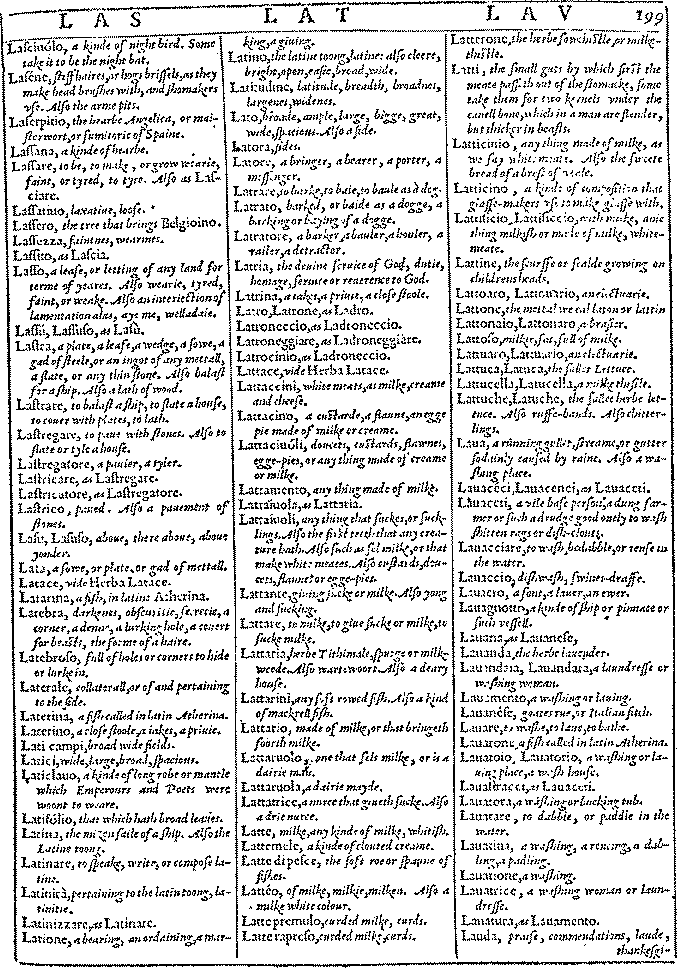 LAS LAT LAV 199
Lasciuolo, a kinde of night bird. Some
take it to be the night bat.
stiffe haires, or hogs brissels, as they
make head brushes with, and shomakers
vse. Also the arme pits.
Laserpitio, the hearbe Angelica, or mai-
sterwort, or fumitorie of Spaine.
Lassana, a kinde of hearbe.
Lassare, to be, to make, or grow wearie,
faint, or tyred, to tyre. Also as Las-
ciare.
laxatiue, loose.
Lassero, the tree that brings Belgioino.
Lassezza, faintnes, wearines.
Lassito, as Lascia.
Lasso, a lease, or letting of any land for
terme of yeares. Also wearie, tyred,
faint, or weake. Also an interiection of
lamentation alas, aye me, welladaie.
Lassù, Lassuso, as Lasù.
Lastra, a plate, a leafe, a wedge, a sowe, a
gad of steele, or an ingot of any mettall,
a slate, or any thin stone. Also balast
for a ship. Also a lath of wood.
Lastrare, to balast a ship, to slate a house,
to couer with plates, to lath.
Lastregare, to paue with stones. Also to
slate or tyle a house.
Lastregatore, a pauier, a tyler.
Lastricare, as Lastregare.
Lastricatore, as Lastregatore.
Lastrico, paued. Also a pauement of
stones.
Lasù, Lasuso, aboue, there aboue, aboue
yonder.
Lata, a sowe, or plate, or gad of mettall.
Latace, vide Herba Latace.
Latarina, a fish, in latine Atherina.
Latebra, darkenes, obscuritie, secrecie, a
corner, a denne, a lurking hole, a couert
for beasts, the forme of a haire.
Latebroso, full of holes or corners to hide
or lurke in.
Laterale, collaterall, or of and pertaining
to the side.
Laterina, a fish called in latin Atherina.
Laterino, a close stoole, a iakes, a priuie.
Lati campi, broad wide fields.
Latici, wide, large, broad, spacious.
Laticlauo, a kinde of long robe or mantle
which Emperours and Poets were
woont to weare.
Latifolio, that which hath broad leaues.
Latina, the mizen saile of a ship. Also the
Latine toong.
Latinare, to speake, write, or compose la-
tine.
Latinità, pertaining to the latin toong, la-
tinitie.
Latinizzare, as Latinare.
Latione, a bearing, an ordaining, a mar-
king, a giuing.
Latino, the latine toong, latine: also cleere,
bright, open, easie, broad, wide.
Latitudine, latitude, breadth, broadnes,
largenes, widenes.
Lato, broade, ample, large, bigge, great,
wide, spatious. Also a side.
Latora, sides.
Latore, a bringer, a bearer, a porter, a
messenger.
Latrare, to barke, to baie, to baule as a dog.
Latrato, barked, or baide as a dogge, a
barking or baying of a dogge.
Latratore, a barker, a bauler, a houler, a
railer, a detractor.
Latria, the deuine seruice of God, dutie,
homage, seruice or reuerence to God.
Latrina, a iakes, a priuie, a close stoole.
Latro, Latrone, as Ladro.
Latroneccio, as Ladroneccio.
Latroneggiare, as Ladroneggiare.
Latrocinio, as Ladroneccio.
Lattace, vide Herba Latace.
Lattaccini, white meats, as milke, creame
and cheese.
Lattacino, a custarde, a flaune, an egge
pie made of milke or creame.
Lattaciuoli, doucets, custards, flawnes,
egge-pies, or any thing made of creame
or milke.
Lattamento, any thing made of milke.
Lattaiuola, as Lattaria.
Lattaiuoli, any thing that suckes, or suck-
lings. Also the first teeth that any crea-
ture hath. Also such as sel milke, or that
make white meates. Also custards, dou-
cets, flaunes or egge-pies.
Lattante, giuing sucke or milke. Also yong
and sucking.
Lattare, to milke, to giue sucke or milke, to
sucke milke.
Lattaria, herbe Tithimale, spurge or milke
weede. Also wartewoort. Also a deary
house.
Lattarini, any soft rowed fish. Also a kind
of mackrell fish.
Lattario, made of milke, or that bringeth
foorth milke.
Lattaruolo, one that sels milke, or is a
dairie man.
Lattaruola, a dairie mayde.
Lattatrice, a nurce that giueth sucke. Also
a drie nurce.
Latte, milke, any kinde of milke, whitish.
Lattemele, a kinde of clouted creame.
Latte di pesce, the soft roe or spaune of
fishes.
Lattéo, of milke, milkie, milken. Also a
milke white colour.
Latte premulo, curded milke, curds.
Latte rapreso, curded milke, curds.
Latterone, the herbe sowthistle, or milke-
thistle.
Latti, the small guts by which first the
meate passeth out of the stomacke, some
take them for two kernels vnder the
canell bone, which in a man are slender,
but thicker in beasts.
Latticinio, any thing made of milke, as
we say white meate. Also the sweete
bread of a brest of veale.
Latticino, a kinde of composition that
glasse-makers vse to make glasse with.
Lattificio, Lattificcio, white make, anie
thing milkish or made of milke, white-
meate.
Lattine, the scurffe or scalde growing on
childrens heads.
Lattoaro, Lattouario, an electuarie.
Lattone, the mettal we cal laton or lattin
Lattonaio, Lattonaro, a brasier.
Lattoso, milkie, fat, full of milke.
Lattuaro, Lattuario, an electuarie.
Lattuca, Latuca, the sallet Lettuce.
Lattucella, Latucella, a milke thistle.
Lattuche, Latuche, the sallet herbe let-
tuce. Also ruffe-bands. Also chitter-
lings.
Laua, a running gullet, streame, or gutter
sodainly caused by raine. Also a wa-
shing place.
Lauaceci, Lauacenci, as Lauacci.
a vile base person, a dung far-
mer or such a drudge good onely to wash
shitten rags or dish-clouts.
Lauacciare, to wash, bedabble, or rense in
the water.
Lauaccio, dishwash, swines-draffe.
Lauacro, a font, a lauer, an ewer.
a kinde of ship or pinnace or
such vessell.
Lauana, as Lauanese,
Lauanda, the herbe lauender.
Lauandaia, Lauandara, a laundresse or
washing woman.
Lauamento, a washing or lauing.
Lauanése, goates rue, or Italian fitch.
Lauare, to washe, to laue, to bathe.
Lauarone, a fish called in latin Atherina.
Lauatoio, Lauatorio, a washing or la-
uing place, a wash house.
as Lauacci.
Lauatora, a washing or bucking tub.
Lauatare, to dabble, or paddle in the
water.
Lauatina, a washing, a rencing, a dab-
ling, a padling.
Lauatione, a washing.
Lauatrice, a washing woman or laun-
dresse.
Lauatura, as Lauamento.
Lauda, praise, commendations, laude,
thankesgi-